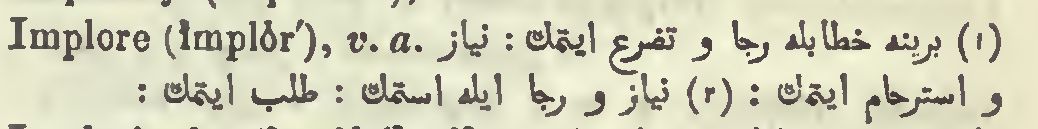 Implore (ĭmplōr′), v. a. (۱) برینه خطابله رجا و تضرع ایتمك : نیاز
و استرحام ایتمك : (۲) نیاز و رجا ایله استمك : طلب ایتمك :